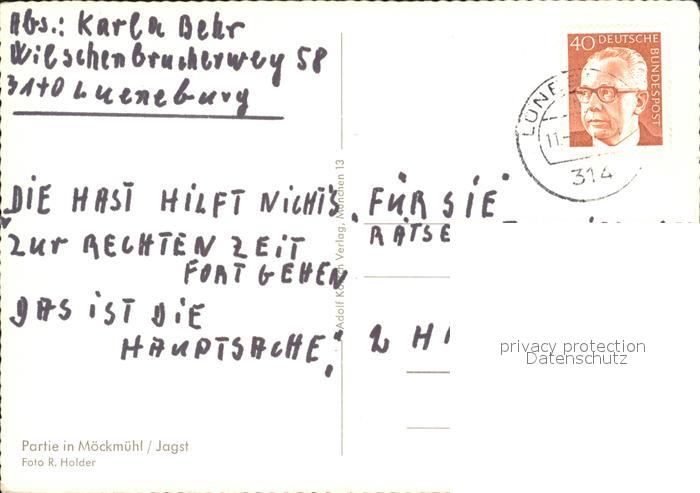 Abs.: Karla Behr
Wilschenbrucherweg 58
3140 Lueneburg
40 DEUTSCHE
BUNDESPOST
LÜNE
11.
314
DIE HAST HILFT NICHTS,
ZUr RECHTEN ZEIT
FORTGEHEN
DAS IST DIE
HAUPTSACHE.
FÜR SIE
RÄTSE
2 H
Adolf Korsch Verlag, München 13
privacy protection
Datenschutz
Partie in Möckmühl / Jagst
Foto R. Holder